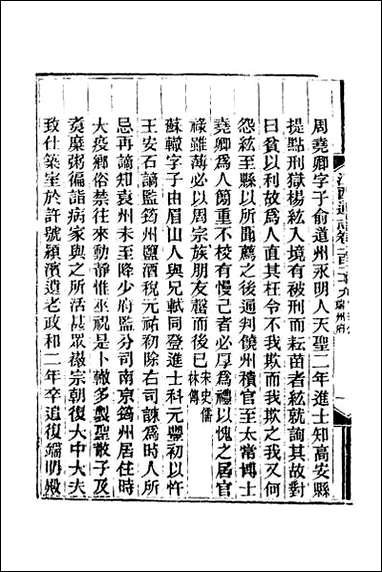 江西通志卷一百二十九瑞州府 一
周堯卿字子俞道州永明人天聖二年進士知高安縣
提點刑獄楊紘入境有被刑而耘苗者紘就詢其故對
曰貧以利故爲人直其枉令不我欺而我欺之我又何
怨紘至縣以所聞薦之後通判饒州積官至太常博士
堯卿爲人簡重不校有慢己者必厚爲禮以愧之居官
祿雖薄必以周宗族朋友罄而後已宋史儒林傳
蘇轍字子由眉山人與兄軾同登進士科元豐初以忤
王安石謫監筠州鹽酒稅元祐初除右司諫爲時人所
忌再謫知袁州未至降少府監分司南京筠州居住時
大疫鄉俗禁往來動靜惟巫祝是卜轍多製聖散子及
煑糜粥徧詣病家與之所活甚眾徽宗朝復大中大夫
致仕築室於許號潁濱遺老政和二年卒追復端明殿